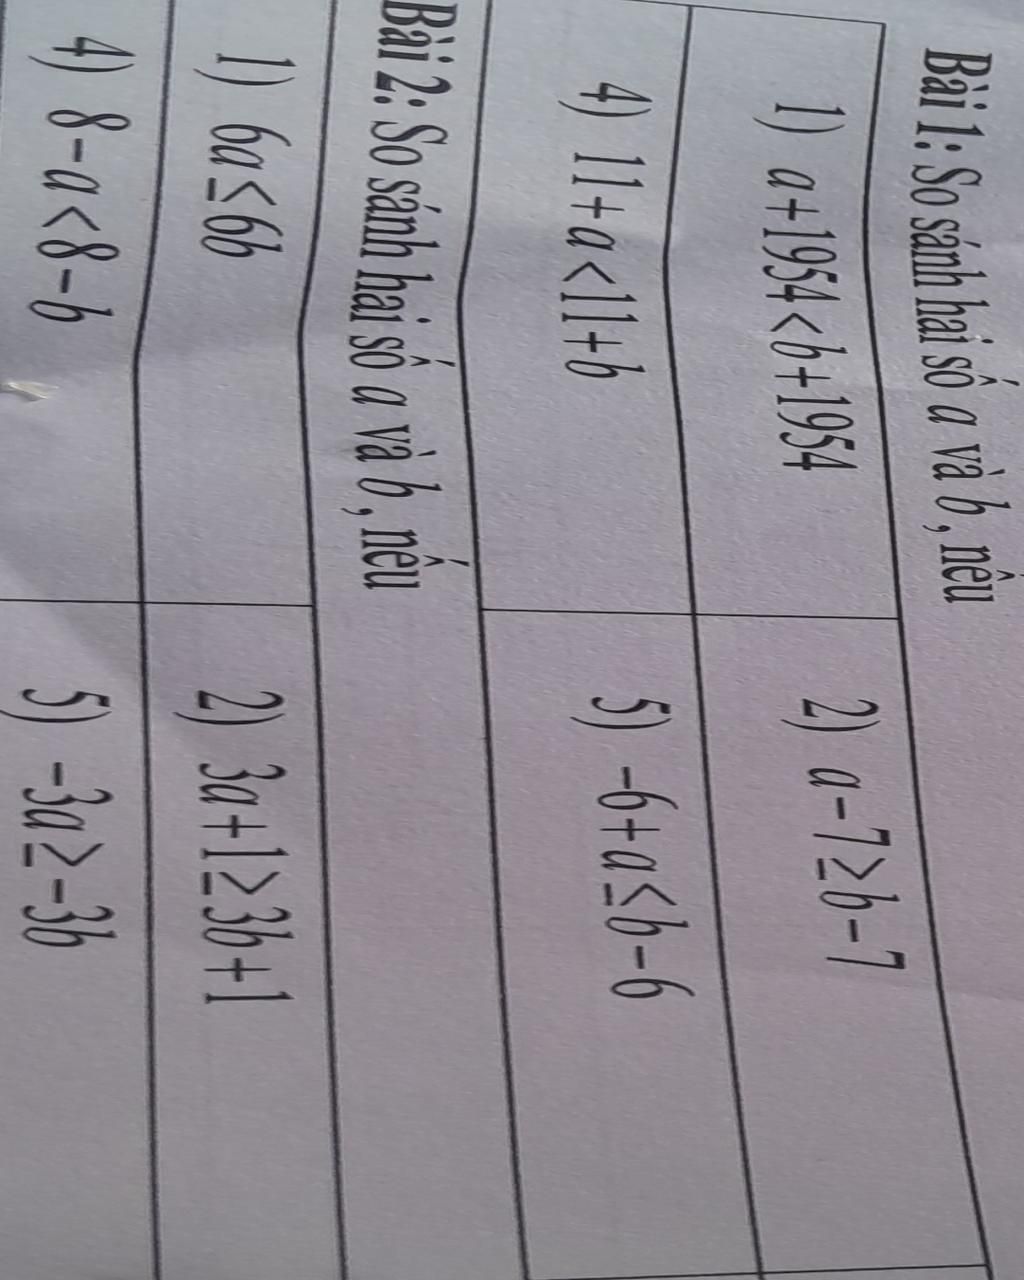 Bài 1: So sánh hai số a và b, nếu
1) a+1954<b+1954
2) a-7≥b-7
4) 11+a<11+b
5) -6+a≤b-6
Bài 2: So sánh hai số a và b, nếu
1) 6a≤6b
2) 3a+1≥3b+1
4) 8-a<8-b
5) -3a≥-3b